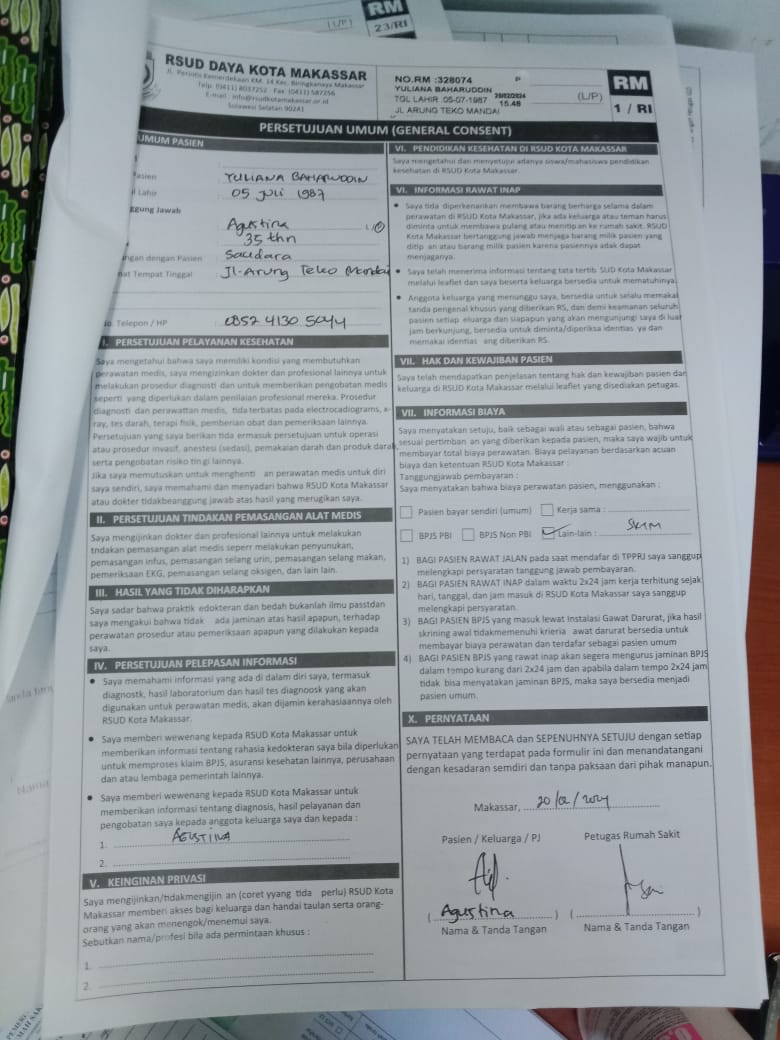 RM
23/RI
(L/P)
RSUD DAYA KOTA MAKASSAR
Jl. Perintis Kemerdekaan KM. 14 Kec. Biringkanaya Makassar
Telp. (0411) 8037252 Fax (0411) 587256
Sulawesi Selatan 90241
NO.RM :328074 P
YULIANA BAHARUDDIN
TGL LAHIR :05-07-1987
15.48
(L/P)
JL ARUNG TEKO MANDAI
RM
1 / RI
PERSETUJUAN UMUM (GENERAL CONSENT)
UMUM PASIEN
asien YULIANA BAHARUDDIN
Lahir 05 JULI 1987
ggung Jawab
Agustina
35 thn
ngan dengan Pasien Saudara
at Tempat Tinggal Jl. Arung Teko Mandai
No. Telepon / HP 0852 4130 5044
I. PERSETUJUAN PELAYANAN KESEHATAN
Saya mengetahui bahwa saya memiliki kondisi yang membutuhkan
perawatan medis, saya mengizinkan dokter dan profesional lainnya untuk
melakukan prosedur diagnosti dan untuk memberikan pengobatan medis
seperti yang diperlukan dalam penilaian profesional mereka. Prosedur
diagnosti dan perawattan medis, tida terbatas pada electrocadiograms, x-
ray, tes darah, terapi fisik, pemberian obat dan pemeriksaan lainnya.
Persetujuan yang saya berikan tida ermasuk persetujuan untuk operasi
atau prosedur invasif, anestesi (sedasi), pemakaian darah dan produk darah
serta pengobatan risiko tingi lainnya.
Jika saya memutuskan untuk menghenti an perawatan medis untuk diri
saya sendiri, saya memahami dan menyadari bahwa RSUD Kota Makassar
atau dokter tidakbeanggung jawab atas hasil yang merugikan saya.
II. PERSETUJUAN TINDAKAN PEMASANGAN ALAT MEDIS
Saya mengijinkan dokter dan profesional lainnya untuk melakukan
tndakan pemasangan alat medis seperr melakukan penyunukan,
pemasangan infus, pemasangan selang urin, pemasangan selang makan,
pemeriksaan EKG, pemasangan selang oksigen, dan lain lain.
III. HASIL YANG TIDAK DIHARAPKAN
Saya sadar bahwa praktik edokteran dan bedah bukanlah ilmu passtdan
saya mengakui bahwa tidak ada jaminan atas hasil apapun, terhadap
perawatan prosedur atau pemeriksaan apapun yang dilakukan kepada
saya.
IV. PERSETUJUAN PELEPASAN INFORMASI
• Saya memahami informasi yang ada di dalam diri saya, termasuk
diagnostk, hasil laboratorium dan hasil tes diagnoosk yang akan
digunakan untuk perawatan medis, akan dijamin kerahasiaannya oleh
RSUD Kota Makassar.
• Saya memberi wewenang kepada RSUD Kota Makassar untuk
memberikan informasi tentang rahasia kedokteran saya bila diperlukan
untuk memproses klaim BPJS, asuransi kesehatan lainnya, perusahaan
dan atau lembaga pemerintah lainnya.
• Saya memberi wewenang kepada RSUD Kota Makassar untuk
memberikan informasi tentang diagnosis, hasil pelayanan dan
pengobatan saya kepada anggota keluarga saya dan kepada :
1. AGUSTINA
2.
V. KEINGINAN PRIVASI
Saya mengijinkan/tidakmengijin an (coret yyang tida perlu) RSUD Kota
Makassar memberi akses bagi keluarga dan handai taulan serta orang-
orang yang akan menengok/menemui saya.
Sebutkan nama/profesi bila ada permintaan khusus :
1.
2.
VI. PENDIDIKAN KESEHATAN DI RSUD KOTA MAKASSAR
Saya mengetahui dan menyetujui adanya siswa/mahasiswa pendidikan
kesehatan di RSUD Kota Makassar.
VI. INFORMASI RAWAT INAP
• Saya tida diperkenankan membawa barang berharga selama dalam
perawatan di RSUD Kota Makassar, jika ada keluarga atau teman harus
diminta untuk membawa pulang atau menitip an ke rumah sakit. RSUD
Kota Makassar bertanggung jawab menjaga barang milik pasien yang
ditip an atau barang milik pasien karena pasiennya adak dapat
menjaganya.
• Saya telah menerima informasi tentang tata tertib SUD Kota Makassar
melalui leaflet dan saya beserta keluarga bersedia untuk mematuhinya.
• Anggota keluarga yang menunggu saya, bersedia untuk selalu memakai
tanda pengenal khusus yang diberikan RS, dan demi keamanan seluruh
pasien setiap eluarga dan siapapun yang akan mengunjungi saya di luar
jam berkunjung, bersedia untuk diminta/diperiksa identias ya dan
memakai identias ang diberikan RS.
VII. HAK DAN KEWAJIBAN PASIEN
Saya telah mendapatkan penjelasan tentang hak dan kewajiban pasien dan
keluarga di RSUD Kota Makassar melalui leaflet yang disediakan petugas.
VII. INFORMASI BIAYA
Saya menyatakan setuju, baik sebagai wali atau sebagai pasien, bahwa
sesuai pertimban an yang diberikan kepada pasien, maka saya wajib untuk
membayar total biaya perawatan. Biaya pelayanan berdasarkan acuan
biaya dan ketentuan RSUD Kota Makassar :
Tanggungjawab pembayaran :
Saya menyatakan bahwa biaya perawatan pasien, menggunakan :
Pasien bayar sendiri (umum) Kerja sama :
BPJS PBI BPJS Non PBI Lain-lain : SKTM
1) BAGI PASIEN RAWAT JALAN pada saat mendafar di TPPRJ saya sanggup
melengkapi persyaratan tanggung jawab pembayaran.
2) BAGI PASIEN RAWAT INAP dalam waktu 2x24 jam kerja terhitung sejak
hari, tanggal, dan jam masuk di RSUD Kota Makassar saya sanggup
melengkapi persyaratan.
3) BAGI PASIEN BPJS yang masuk lewat Instalasi Gawat Darurat, jika hasil
skrining awal tidakmemenuhi krieria awat darurat bersedia untuk
membayar biaya perawatan dan terdafar sebagai pasien umum
4) BAGI PASIEN BPJS yang rawat inap akan segera mengurus jaminan BPJS
dalam tempo kurang dari 2x24 jam dan apabila dalam tempo 2x24 jam
tidak bisa menyatakan jaminan BPJS, maka saya bersedia menjadi
pasien umum.
X. PERNYATAAN
SAYA TELAH MEMBACA dan SEPENUHNYA SETUJU dengan setiap
pernyataan yang terdapat pada formulir ini dan menandatangani
dengan kesadaran semdiri dan tanpa paksaan dari pihak manapun.
Makassar, 20/02/2024
Pasien / Keluarga / PJ Petugas Rumah Sakit
( Agustina ) ( )
Nama & Tanda Tangan Nama & Tanda Tangan